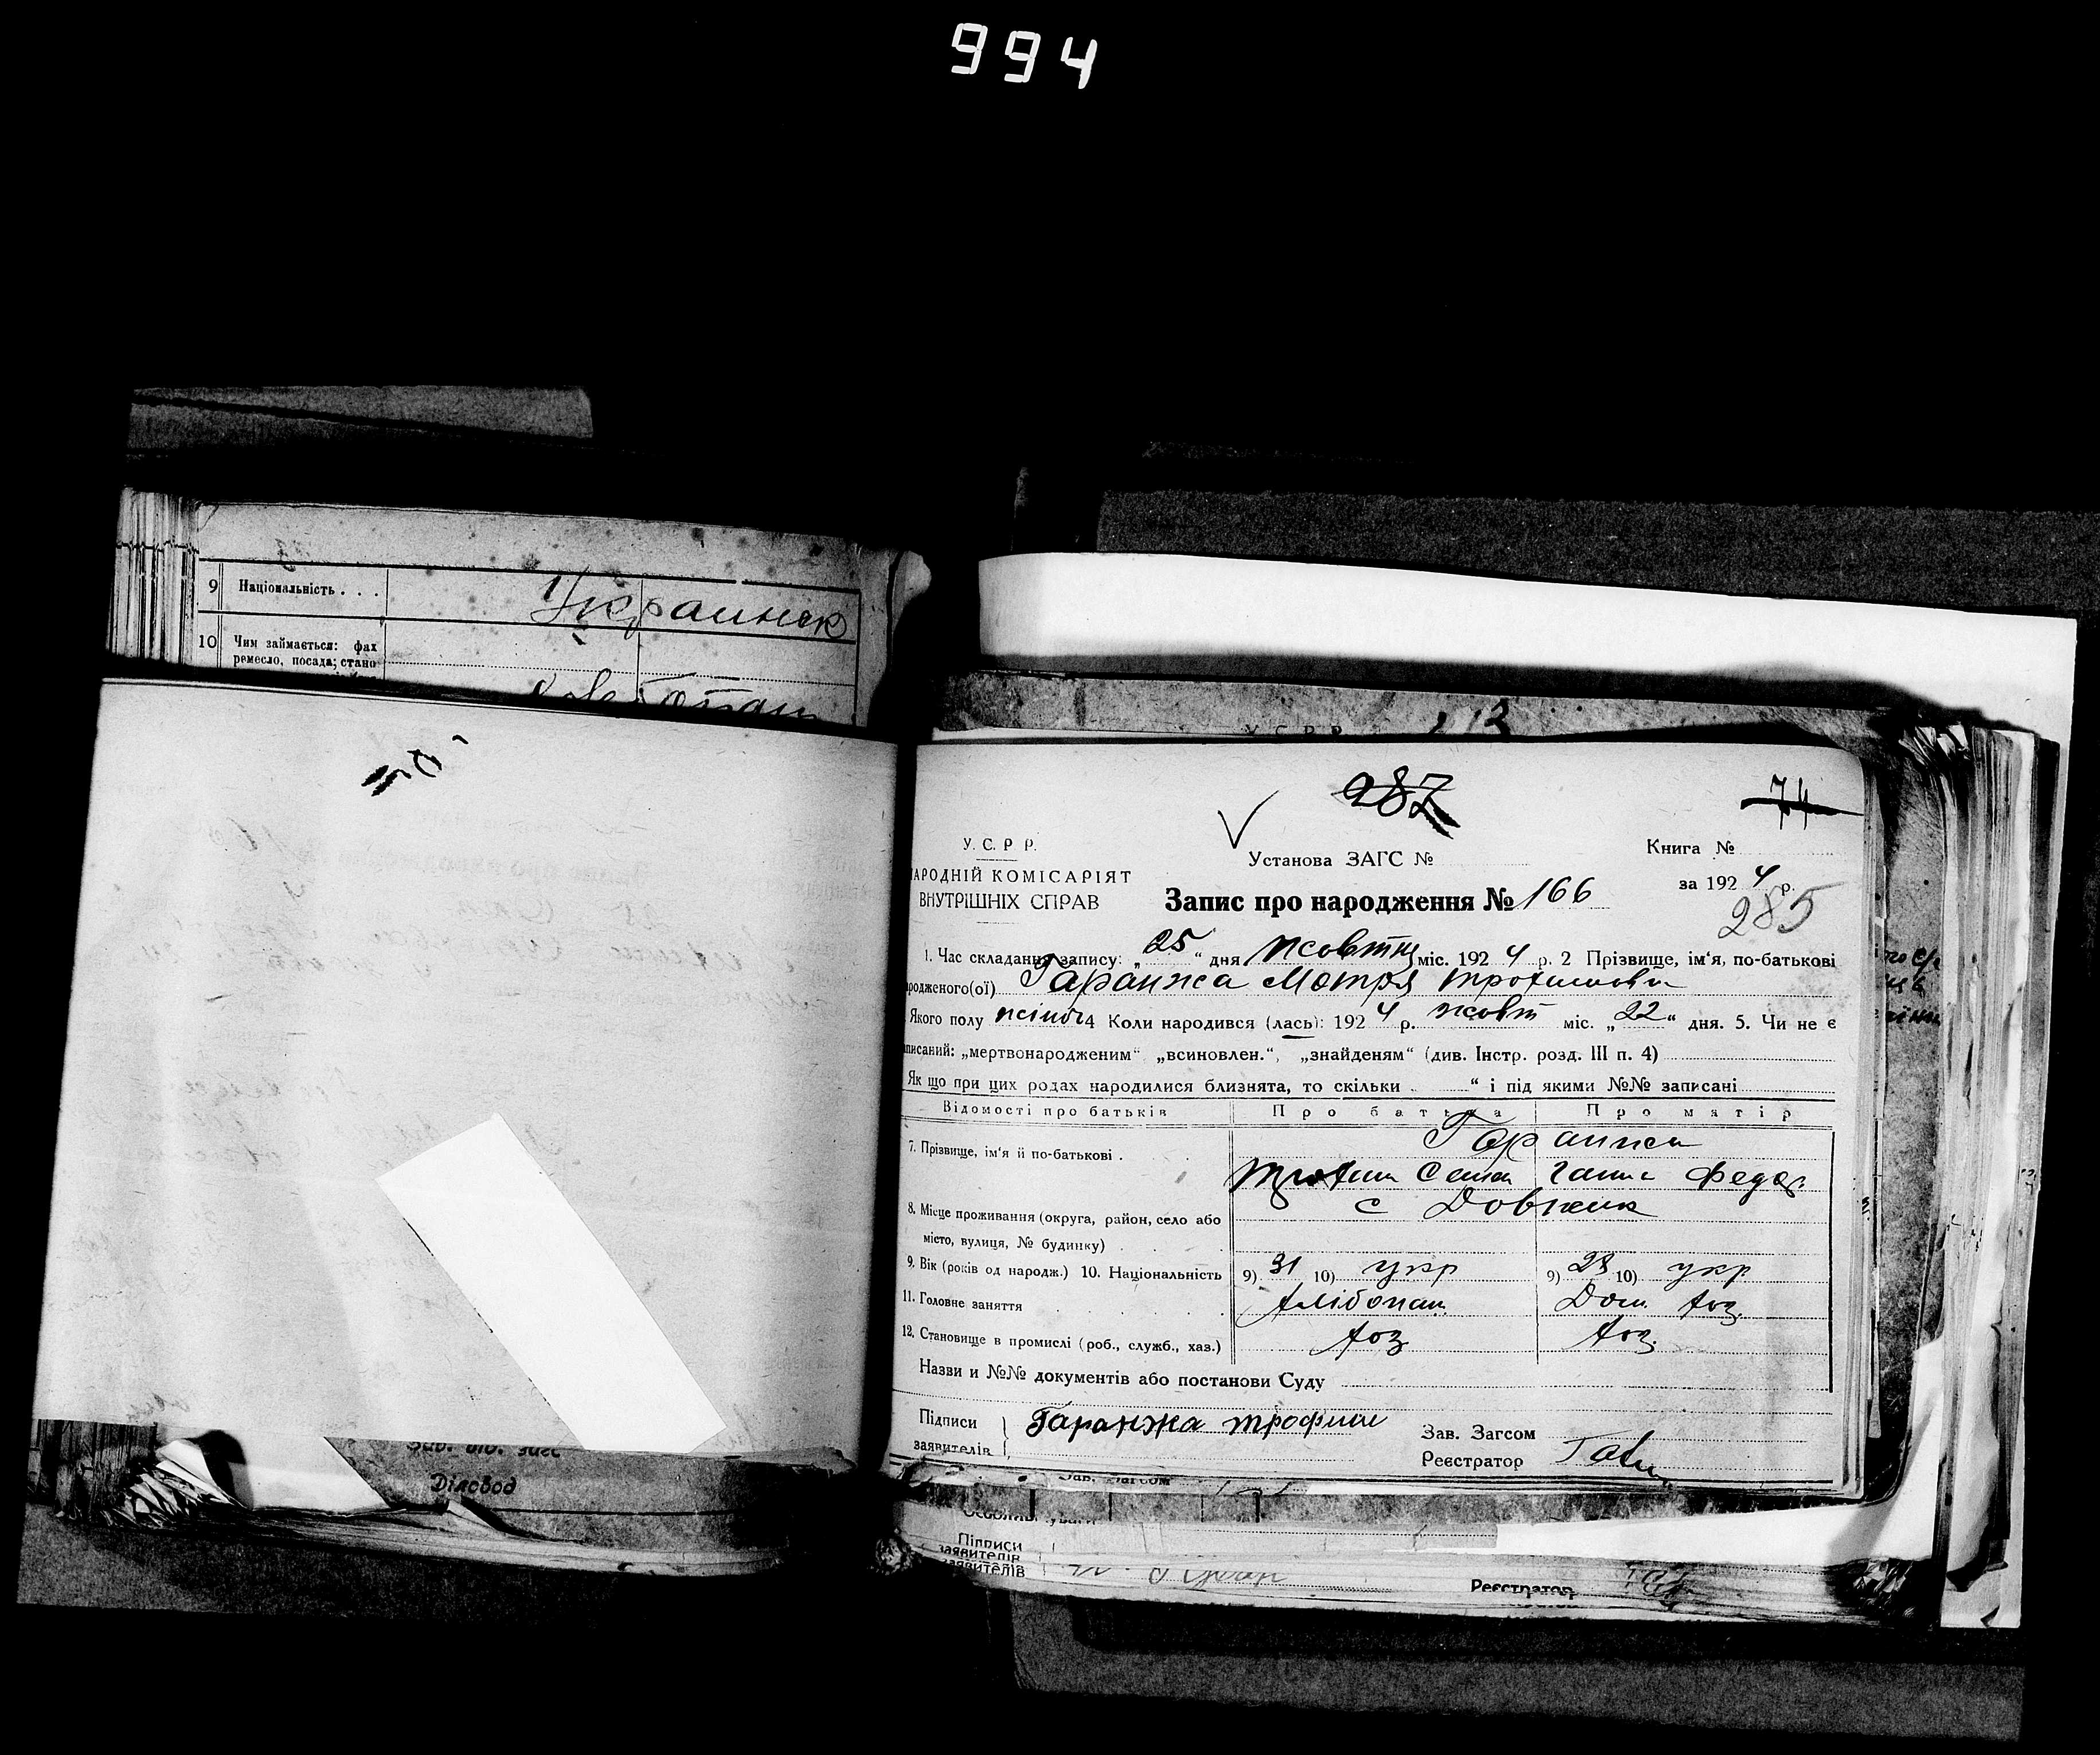 994
9 Національність . . .
Украинск
10 Чим займається: фах
ремесло, посада; стано
У С Р Р
287
74
У. С. Р Р.
Установа ЗАГС №
Книга №
АРОДНІЙ КОМІСАРІЯТ
за 1924 р.
ВНУТРІШНІХ СПРАВ
Запис про народження № 166
285
1. Час складання запису: „25“ дня жовтня міс. 1924 р. 2 Прізвище, ім'я, по-батькові
родженого(ої) Гаранжа Мотря Трохимовн
Якого полу жіноч 4 Коли народився (лась): 1924 р. жовт міс. „22“ дня. 5. Чи не є
писаний: „мертвонародженим“ „всиновлен.“, „знайденям“ (див. Інстр. розд. III п. 4)
Як що при цих родах народилися близнята, то скільки “ і під якими №№ записані
Відомості про батьків Про батька Про матір
7. Прізвище, ім'я й по-батькові .
Гаранжа
Трохим Семен Ганна Федор.
8. Місце проживання (округа, район, село або
с Довжик
місто, вулиця, № будинку)
9. Вік (років од народж.) 10. Національність 9) 31 10) укр 9) 28 10) укр
11. Головне заняття Хлібопаш. Дом. хоз.
12. Становище в промислі (роб., служб., хаз.) хоз хоз.
Назви и №№ документів або постанови Суду
Підписи
заявителів
Гаранжа Трофим
Зав. Загсом
Реєстратор
Зав. від. загс
Діловод
Зав. Загсом
Підписи
заявителів
заявителів
Реєстратор